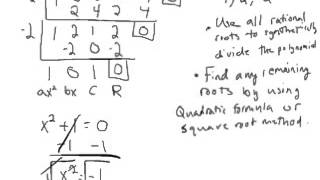 2 4 2 4
-2 1 2 1 2 0
-2 0 -2
1 0 1 0
ax² bx C R
x² + 1 = 0
-1 -1
√x² = √-1
• Use all rational
roots to synthetically
divide the polynomial
• Find any remaining
roots by using
Quadratic formula or
square root method.